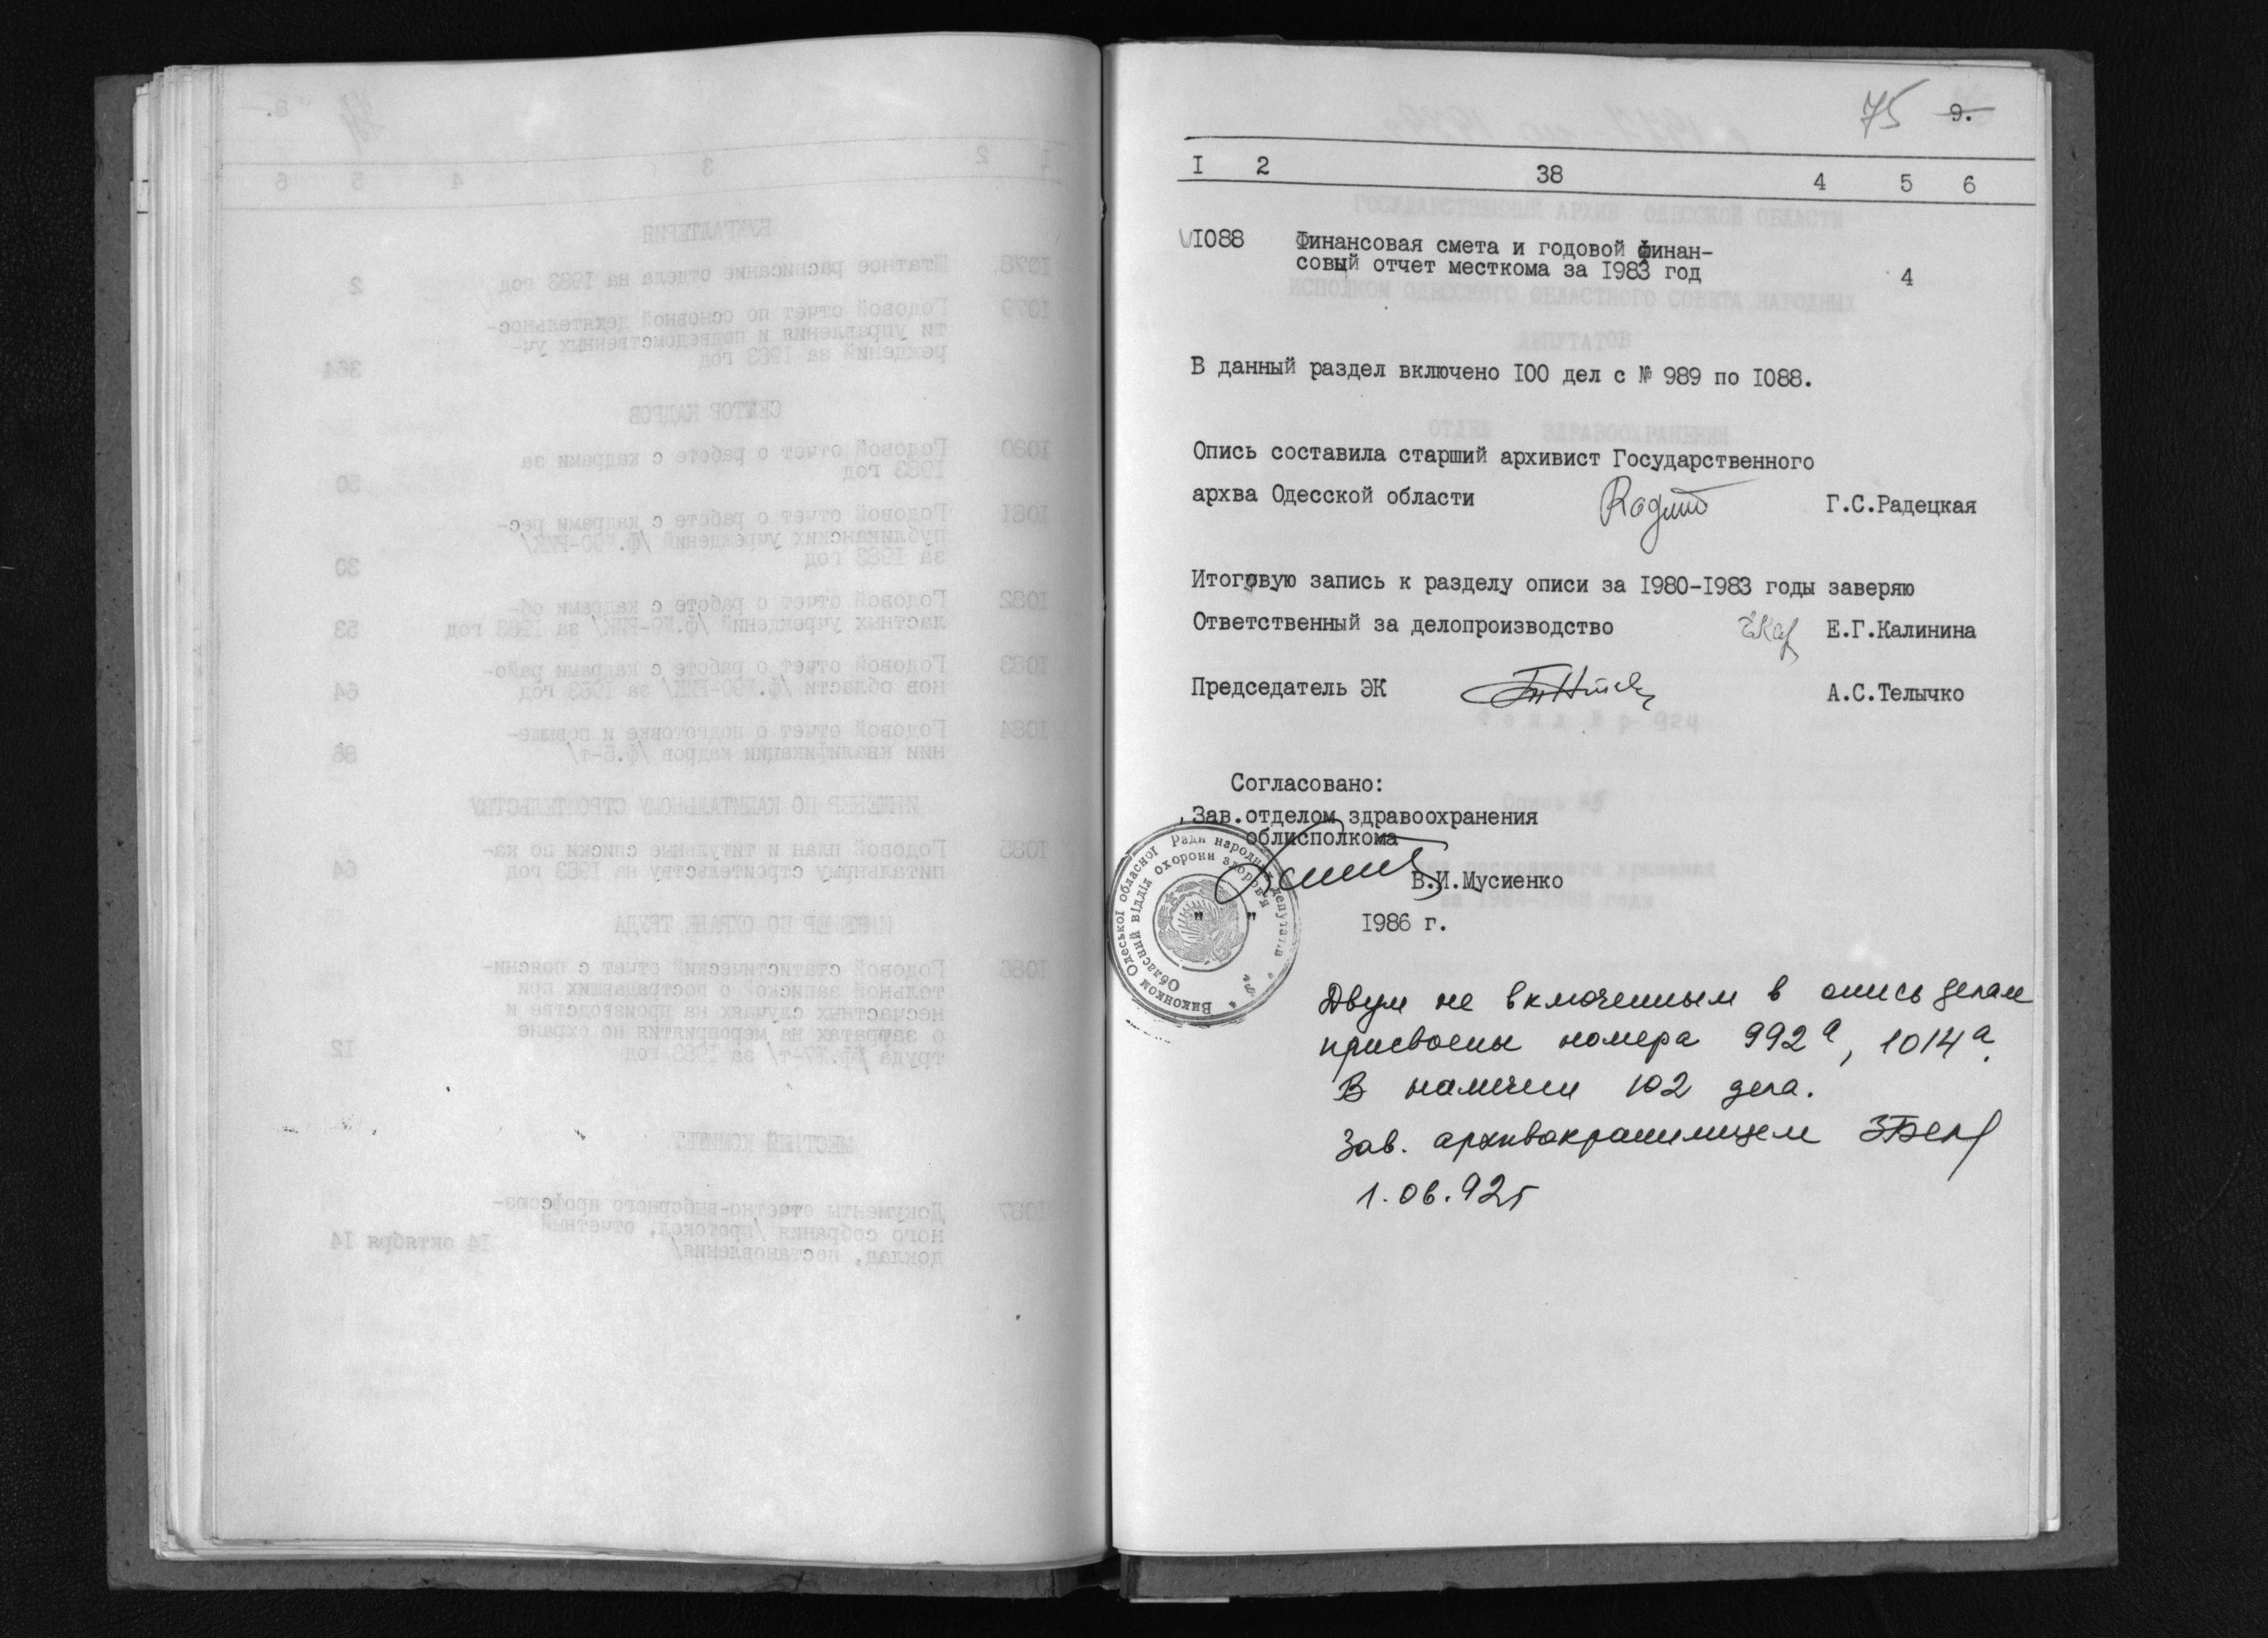 75 9.
I 2 38 4 5 6
I088 Финансовая смета и годовой финан-
совый отчет месткома за I983 год 4
В данный раздел включено I00 дел с № 989 по I088.
Опись составила старший архивист Государственного
архва Одесской области Г.С.Радецкая
Итоговую запись к разделу описи за I980-I983 годы заверяю
Ответственный за делопроизводство Е.Г.Калинина
Председатель ЭК А.С.Телычко
Согласовано:
Зав.отделом здравоохранения
облисполкома
В.И.Мусиенко
" " I986 г.
Виконком Одеської обласної Ради народних депутатів
Обласний відділ охорони здоров'я
Двум не включенным в опись делам
присвоены номера 992а, 1014а.
В наличии 102 дела.
Зав. архивохранилищем
1.06.92г